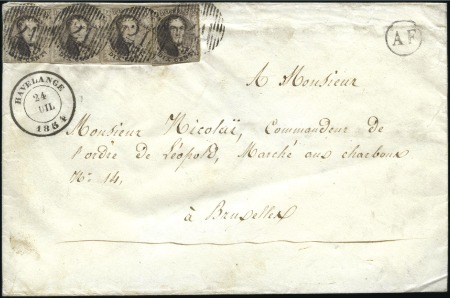 A F
HAVELANGE
24
UIL
1854
A Monsieur
Monsieur Nicolaï, Commandeur de
l'ordre de Léopold, Marché aux charbons
No: 14,
à Bruxelles